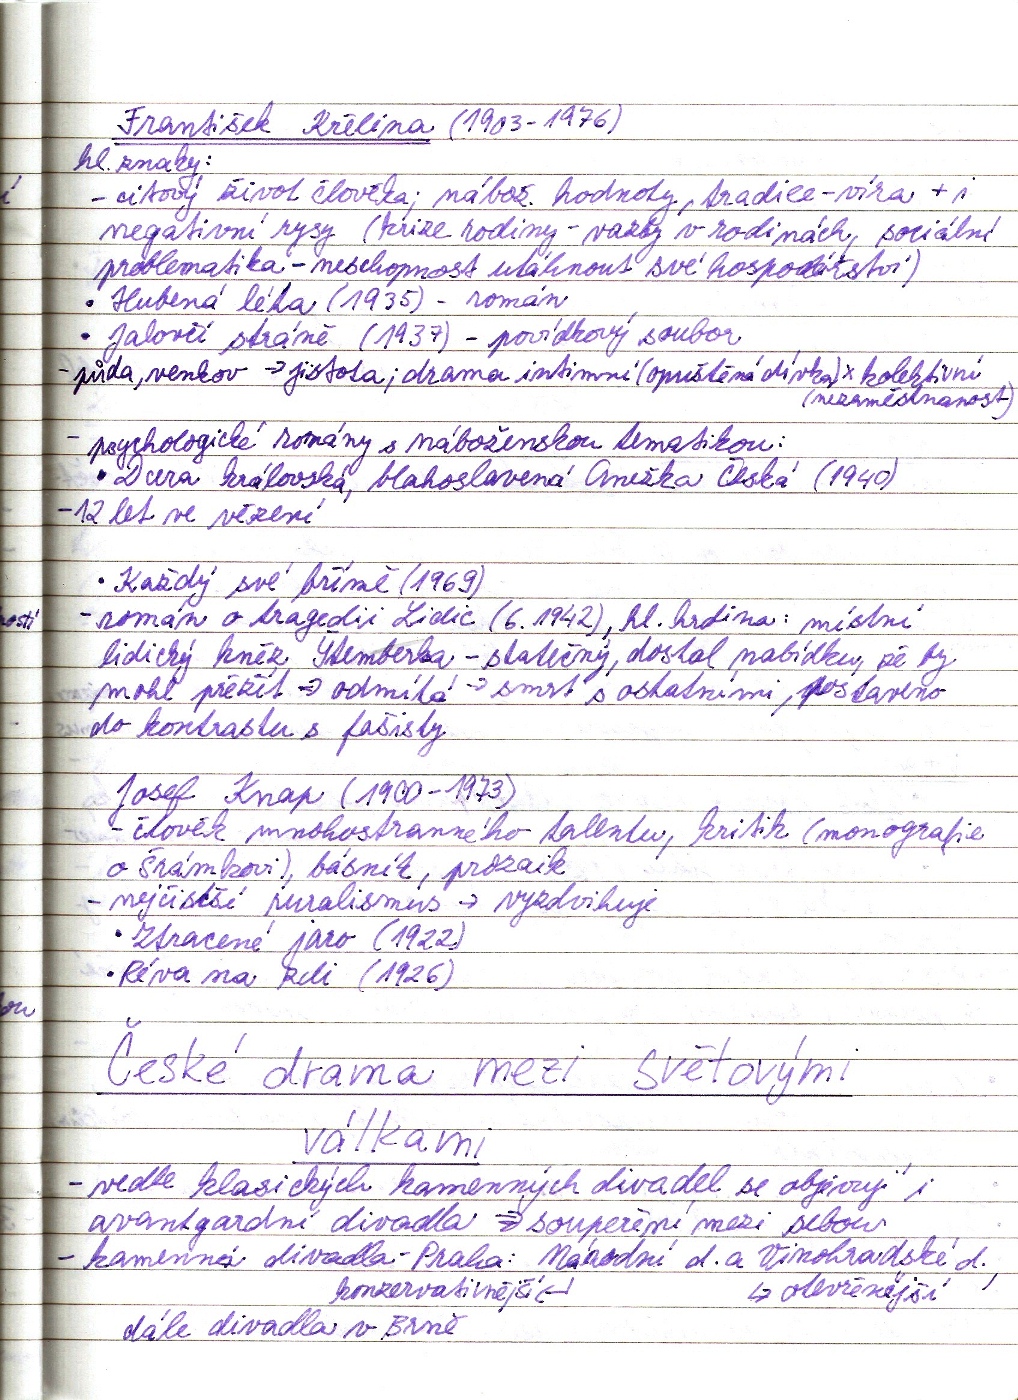 František Křelina (1903-1976)
hl. znaky:
- citový život člověka; nábož. hodnoty, tradice-víra + i
negativní rysy (krize rodiny - vazby v rodinách, sociální
problematika - neschopnost utáhnout své hospodářství)
• Hubená léta (1935) - román
• Jalovčí stráně (1937) - povídkový soubor
- půda, venkov → jistota; drama intimní (opuštěná dívka) x kolektivní
(nezaměstnanost)
- psychologické romány s náboženskou tematikou:
• Dcera královská, blahoslavená Anežka Česká (1940)
- 12 let ve vězení
• Každý své břímě (1969)
- román o tragedii Lidic (6. 1942), hl. hrdina: místní
lidický kněz Štemberka - statečný, dostal nabídku, že by
mohl přežít → odmítá → smrt s ostatními, postaveno
do kontrastu s fašisty
Josef Knap (1900-1973)
- člověk mnohostranného talentu, kritik (monografie
o Šrámkovi), básník, prozaik
- nejčistší ruralismus → vyzdvihuje
• Ztracené jaro (1922)
• Réva na zdi (1926)
České drama mezi světovými
válkami
- vedle klasických kamenných divadel se objevují i
avantgardní divadla ⇒ soupeření mezi sebou
- kamenná divadla - Praha: Národní d. a Vinohradské d.,
konzervativnější ↵ ↳ otevřenější
dále divadla v Brně